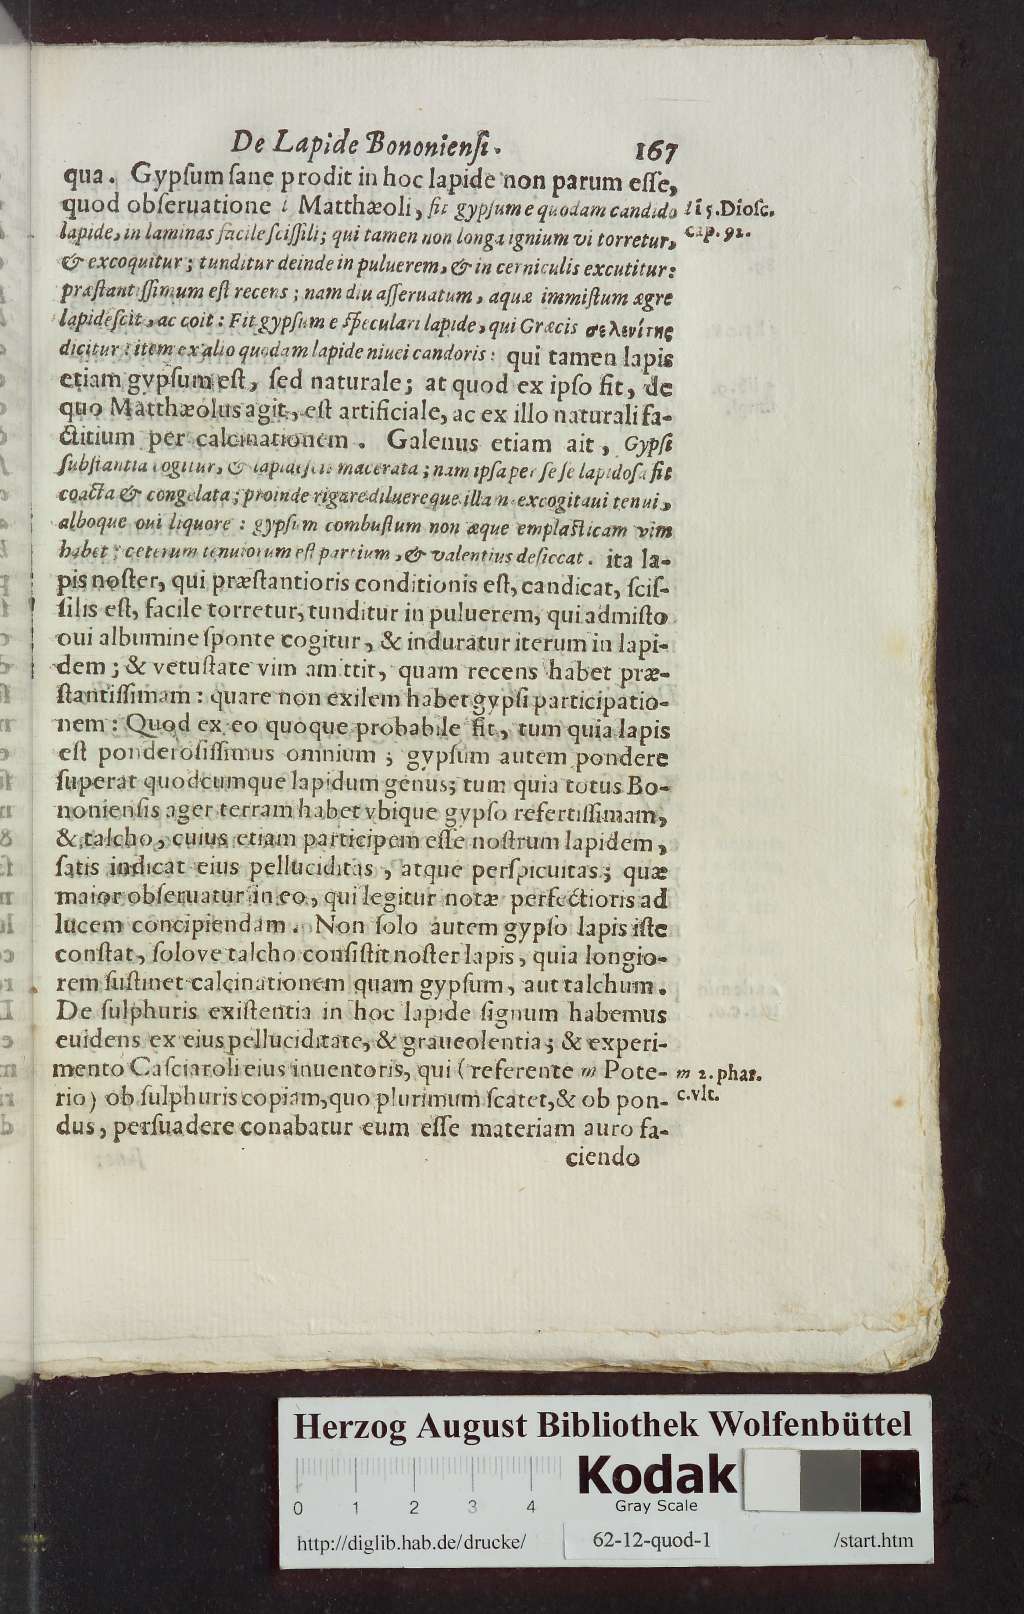 De Lapide Bononiensi. 167
qua. Gypsum sane prodit in hoc lapide non parum esse,
quod obseruatione l Matthæoli, fit gypsum e quodam candido
l i 5. Diosc.
cap. 92.
lapide, in laminas facile scissili; qui tamen non longa ignium vi torretur,
& excoquitur; tunditur deinde in puluerem, & in cerniculis excutitur:
præstantissimum est recens; nam diu asseruatum, aquæ immistum ægre
lapidescit, ac coit: Fit gypsum e speculari lapide, qui Græcis σεληνίτης
dicitur: item ex alio quodam lapide niuei candoris: qui tamen lapis
etiam gypsum est, sed naturale; at quod ex ipso fit, de
quo Matthæolus agit, est artificiale, ac ex illo naturali fa-
ctitium per calcinationem. Galenus etiam ait, Gypsi
substantia cogitur, & lapidescit macerata; nam ipsa per se se lapidosa fit
coacta & congelata; proinde rigare diluereque illam excogitaui tenui,
alboque oui liquore: gypsum combustum non æque emplasticam vim
habet: ceterum tenuiorum est partium, & valentius desiccat. ita la-
pis noster, qui præstantioris conditionis est, candicat, scis-
silis est, facile torretur, tunditur in puluerem, qui admisto
oui albumine sponte cogitur, & induratur iterum in lapi-
dem; & vetustate vim amittit, quam recens habet præ-
stantissimam: quare non exilem habet gypsi participatio-
nem: Quod ex eo quoque probabile fit, tum quia lapis
est ponderosissimus omnium; gypsum autem pondere
superat quodcumque lapidum genus; tum quia totus Bo-
noniensis ager terram habet vbique gypso refertissimam,
& talcho, cuius etiam participem esse nostrum lapidem,
satis indicat eius pelluciditas, atque perspicuitas; quæ
maior obseruatur in eo, qui legitur notæ perfectioris ad
lucem concipiendam. Non solo autem gypso lapis iste
constat, solove talcho consistit noster lapis, quia longio-
rem sustinet calcinationem quam gypsum, aut talchum.
De sulphuris existentia in hoc lapide signum habemus
euidens ex eius pelluciditate, & graueolentia; & experi-
mento Casciaroli eius inuentoris, qui (referente m Pote-
m 2. phar.
c. vlt.
rio) ob sulphuris copiam, quo plurimum scatet, & ob pon-
dus, persuadere conabatur eum esse materiam auro fa-
ciendo
Herzog August Bibliothek Wolfenbüttel
0 1 2 3 4
Kodak
Gray Scale
http://diglib.hab.de/drucke/ 62-12-quod-1 /start.htm